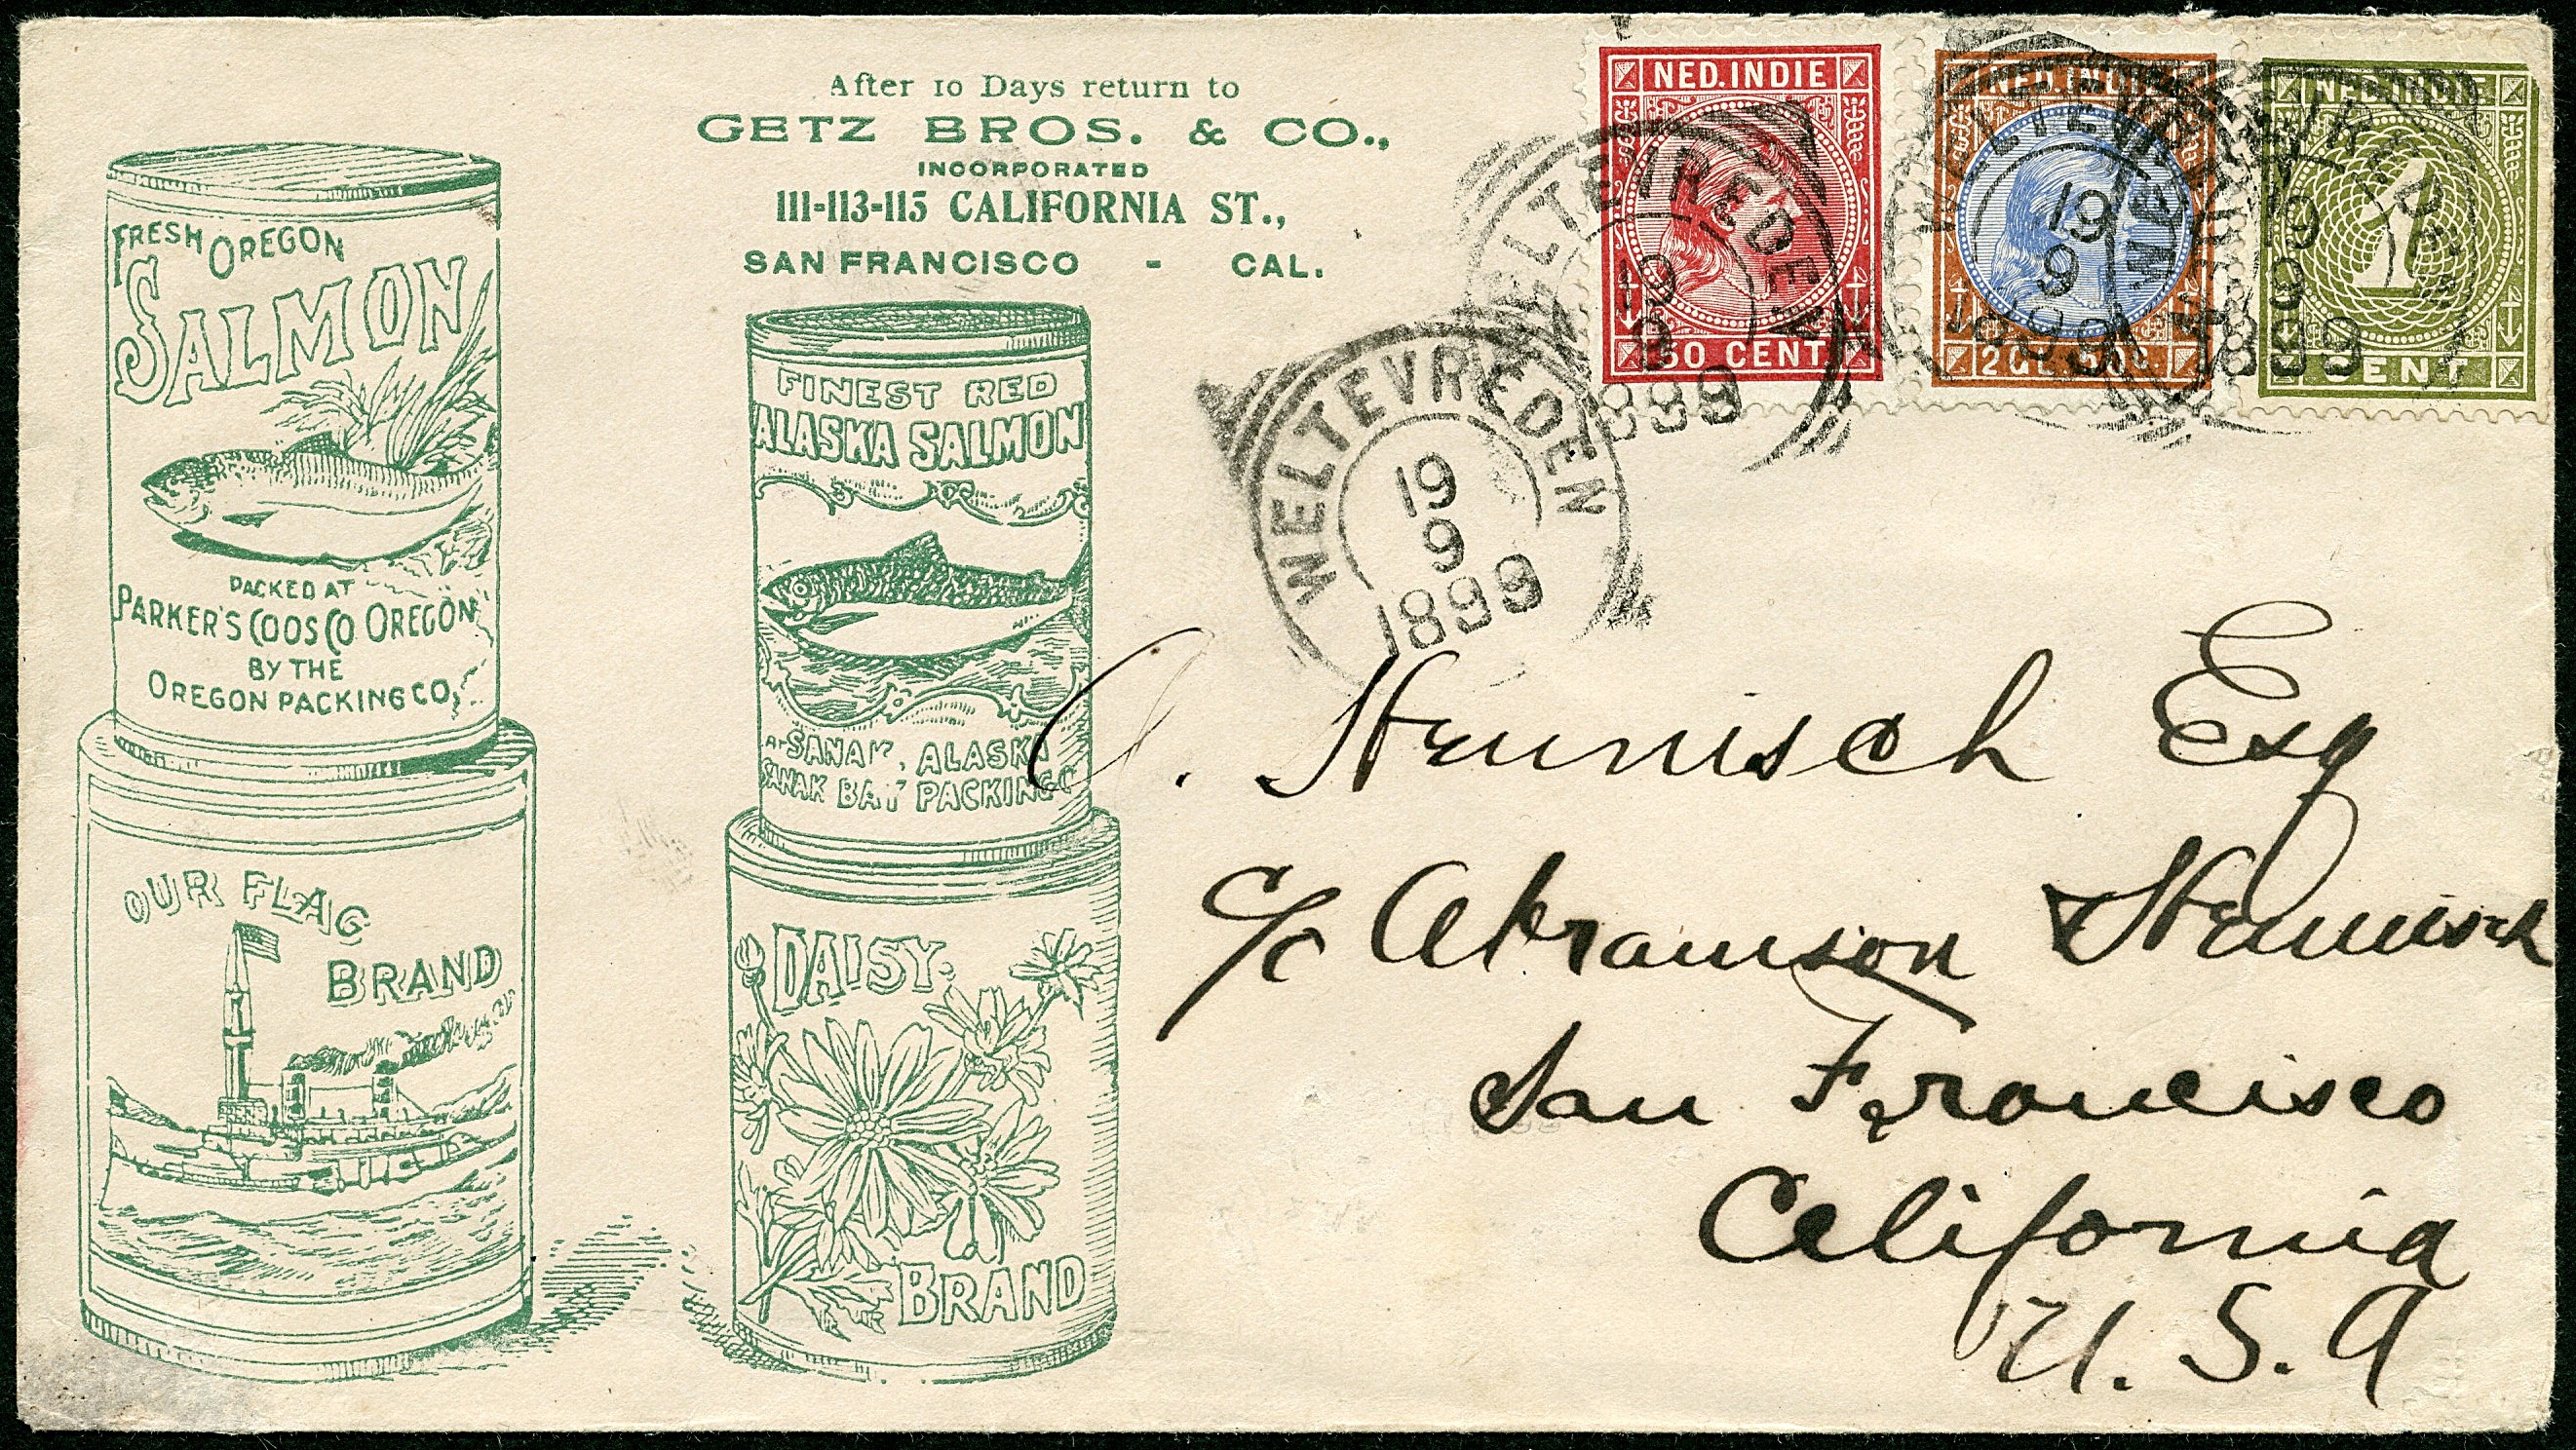 After 10 Days return to
GETZ BROS. & CO.,
INCORPORATED
111-113-115 CALIFORNIA ST.,
SAN FRANCISCO - CAL.
FRESH OREGON
SALMON
PACKED AT
PARKER'S COOS CO. OREGON
BY THE
OREGON PACKING CO.
OUR FLAG
BRAND
FINEST RED
ALASKA SALMON
AT SANAK, ALASKA
SANAK BAY PACKING Co
DAISY
BRAND
NED. INDIE
50 CENT
NED. INDIE
2 GL. 50 C.
NED. INDIE
1
CENT
WELTEVREDEN
19
9
1899
WELTEVREDEN
19
9
1899
WELTEVREDEN
19
9
1899
WELTEVREDEN
19
9
1899
Heunisch Esq
c/o Abramson & Heunisch
San Francisco
California
U.S.A